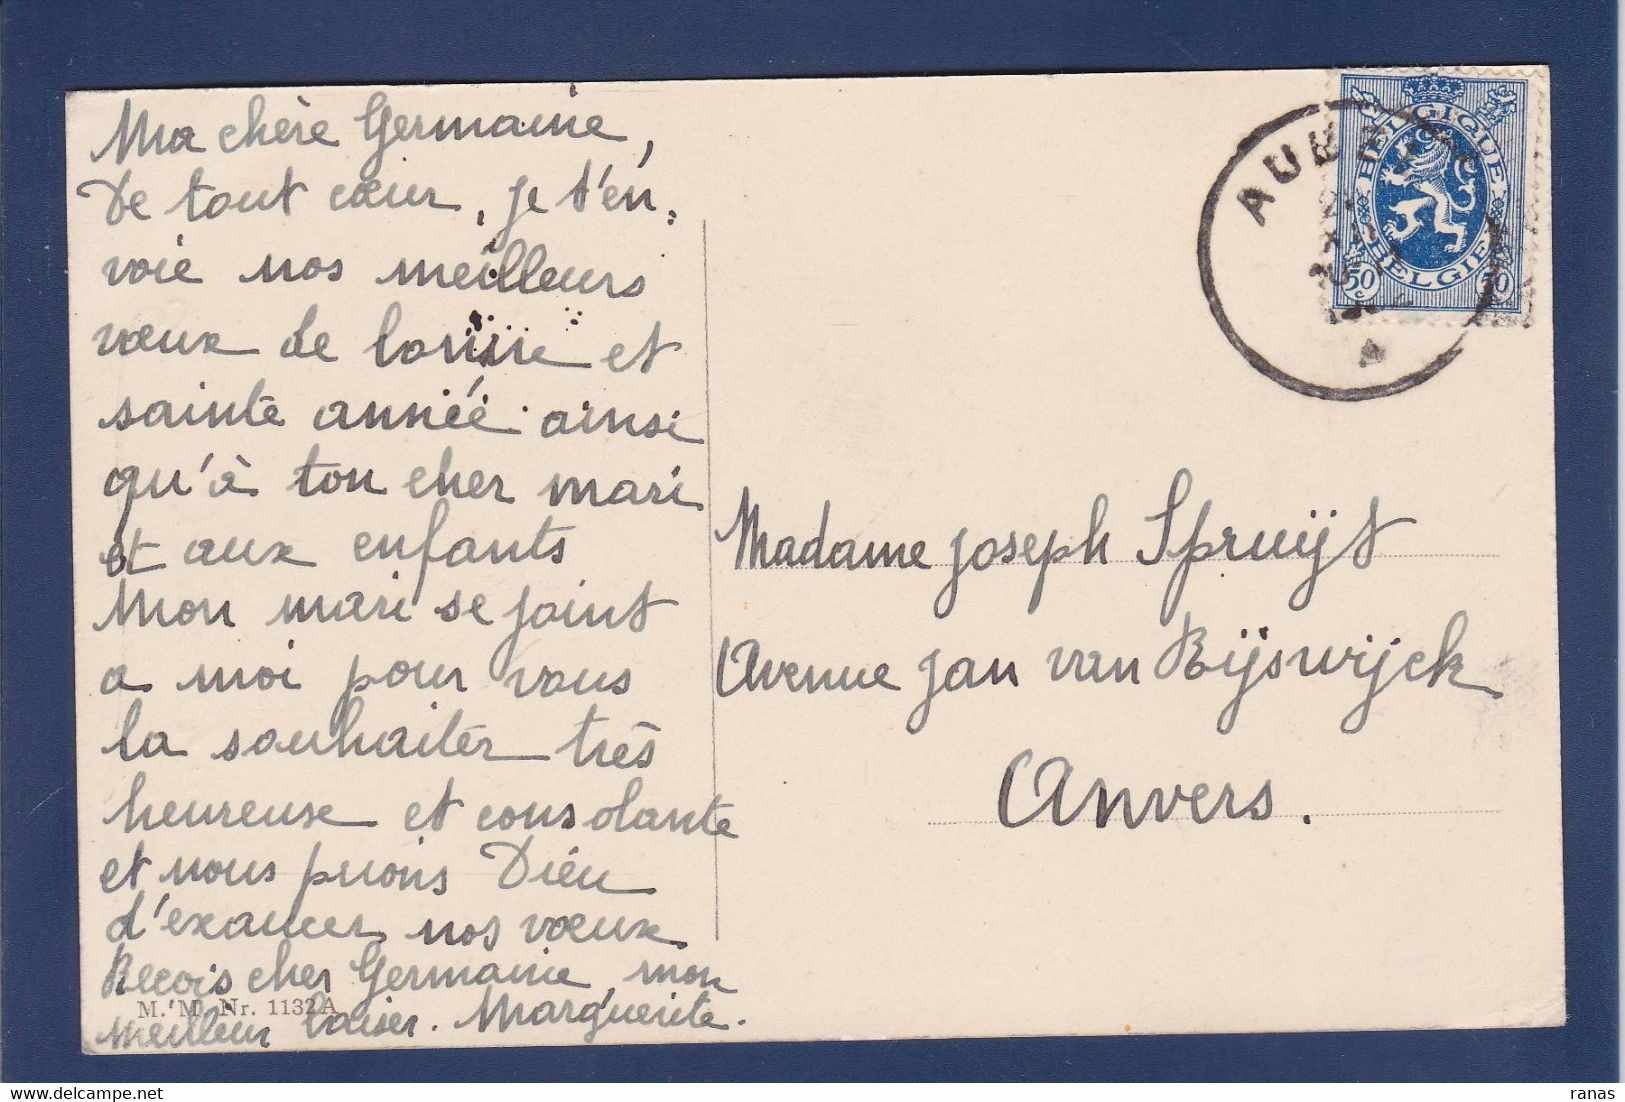 Ma chère Germaine,
De tout cœur, je t'en,
voie nos meilleurs
vœux de bonne et
sainte année ainsi
qu'à ton cher mari
et aux enfants
Mon mari se joint
a moi pour vous
la souhaiter très
heureuse et consolante
et nous prions Dieu
d'exaucer nos vœux
Reçois cher Germaine, mon
meilleur baiser. Marguerite.
M. M. Nr. 1132A
BELGIQUE
BELGIE
50c
50c
A
Madame Joseph Spruijt
Avenue Jan van Rijswijck
Anvers.
ranas